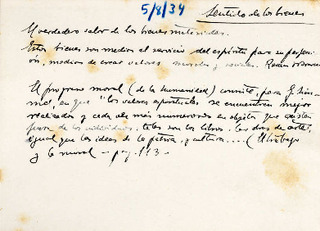 5/8/34
Sentido de los bienes
El verdadero valor de los bienes materiales.
Estos bienes son medios al servicio del espíritu para su perfección,
medios de crear valores morales y sociales.
El progreso moral (de la humanidad) consiste, para
en que "los valores espirituales se encuentran mejor
realizados y cada vez más numerosos en objetos que existen
fuera de los individuos, tales son los libros, las obras de arte,
igual que las ideas de la patria, cultura .... (El trabajo
y la moral - pag. 113 -